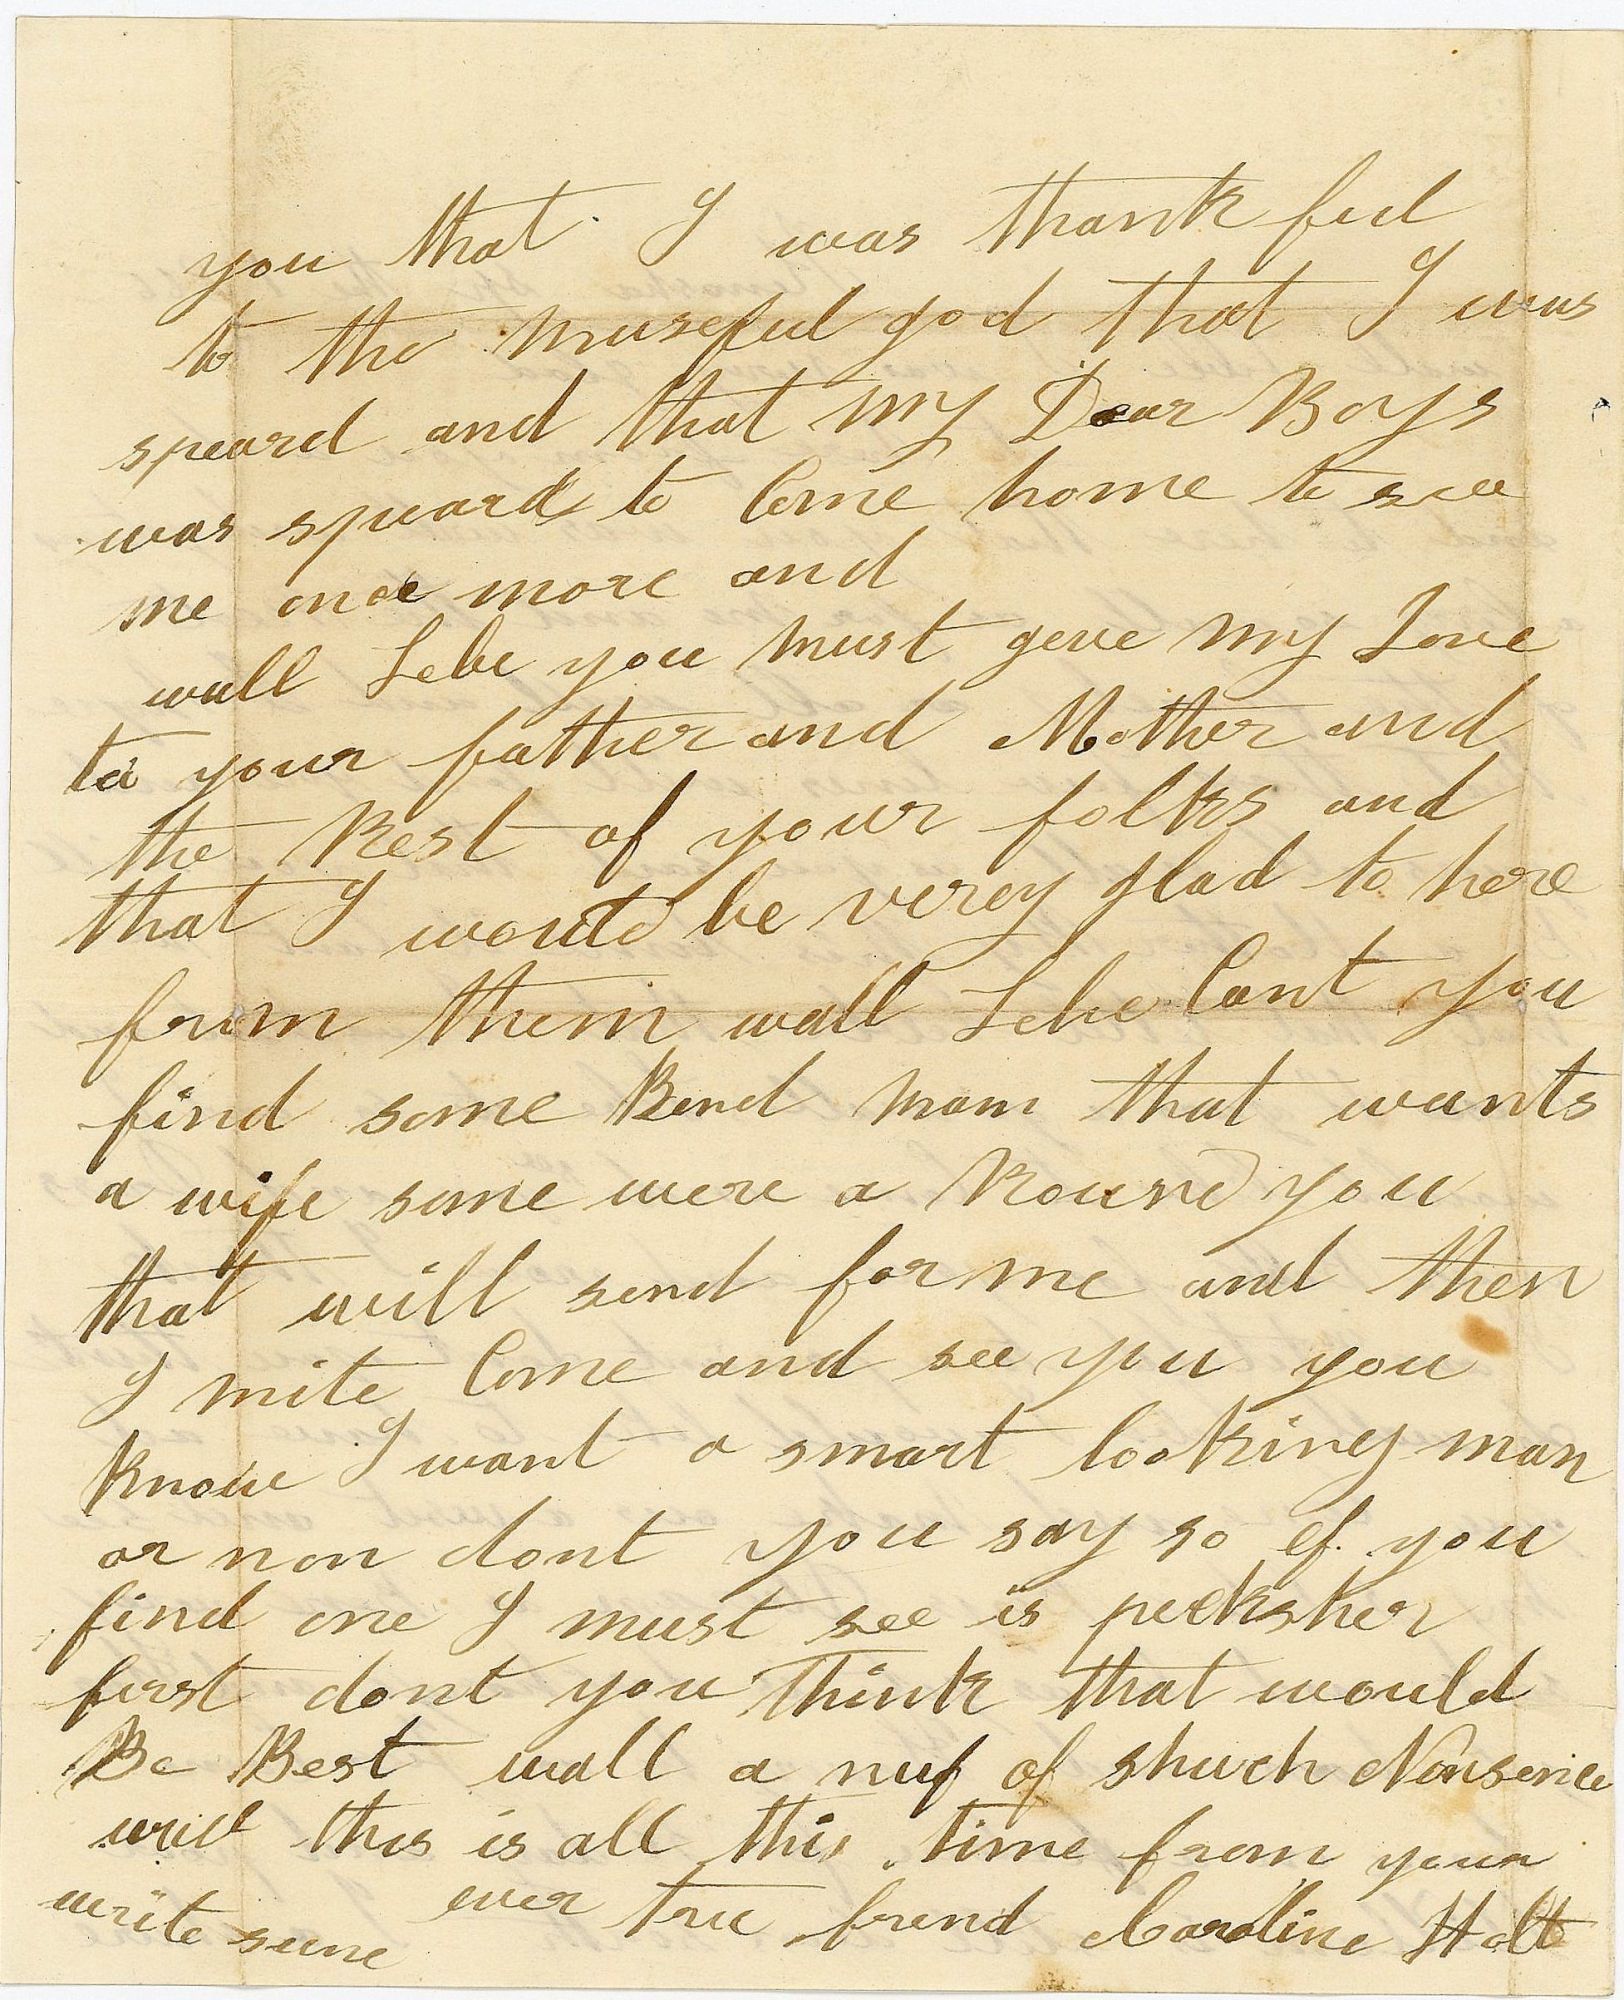 you that I was thank ful
to the museful god that I was
speard and that my Dear Boys
was speard to Come home to see
me once more and
wall Lebe you must geve my Love
to your father and Mother and
the Rest of your folks and
that I would be verey glad to here
from them wall Lebe Cant you
find some Kend man that wants
a wife some were a Round you
that will send for me and then
I mite Come and see you you
know I want a smart looking man
or non dont you say so ef you
find one I must see is peeksher
first dont you think that would
Be Best wall a nuf of shuch Nonsence
this is all this time from your
ever true frend Caroline Halt
write sune